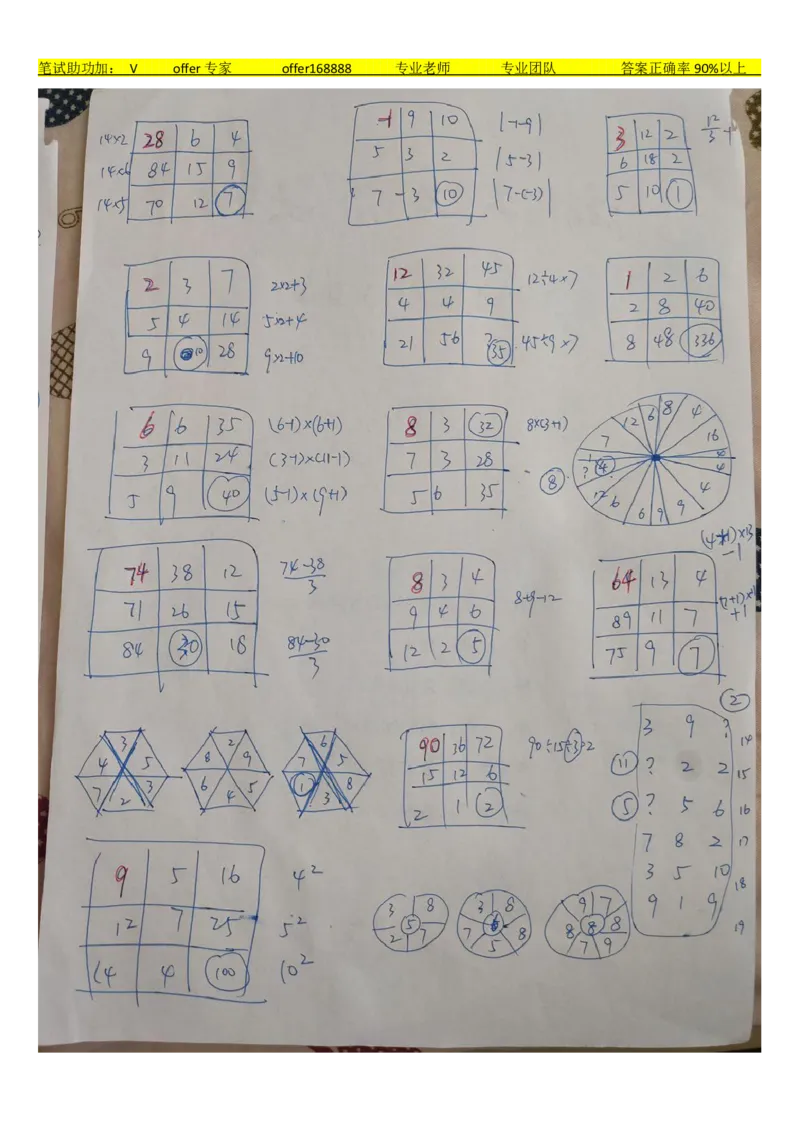 笔试助功加： V offer 专家 offer168888 专业老师 专业团队 答案正确率 90%以上
14×2 28 6 4
14×6 84 15 9
14×5 70 12 7
-1 9 10 |-1-9|
5 3 2 |5-3|
7 -3 10 |7-(-3)|
3 12 2
6 18 2
5 10 1
2 3 7 2×2+3
5 4 14 5×2+4
9 10 28 9×2+10
12 32 45 12÷4×7
4 4 9
21 56 ? 35 45÷9×7
1 2 6
2 8 40
8 48 336
6 6 35 (6-1)×(6+1)
3 11 24 (3-1)×(11-1)
5 9 40 (5-1)×(9+1)
8 3 32 8×(3+1)
7 3 28
5 6 35
8
12 6 8 4
7 16
? 4 4
4
12 4
6 6 9 9
74 38 12 74-38
3
71 26 15
84 30 18 84-30
3
8 3 4 8+9-12
9 4 6
12 2 5
64 13 4
89 11 7
75 9 7
3
4 5
7 3
2
2
8 9
6 5
4
6
7 5
1 8
3
90 36 72 90÷15÷3=2
15 12 6
2 1 2
2
3 9 ? 14
11 ? 2 2 15
5 ? 5 6 16
7 8 2 17
3 5 10 18
9 1 9 19
9 5 16 4²
12 7 25 5²
14 4 100 10²
3 8
5
2 7
3 8
6
7 8
5
9 7
8 8 8
7 9